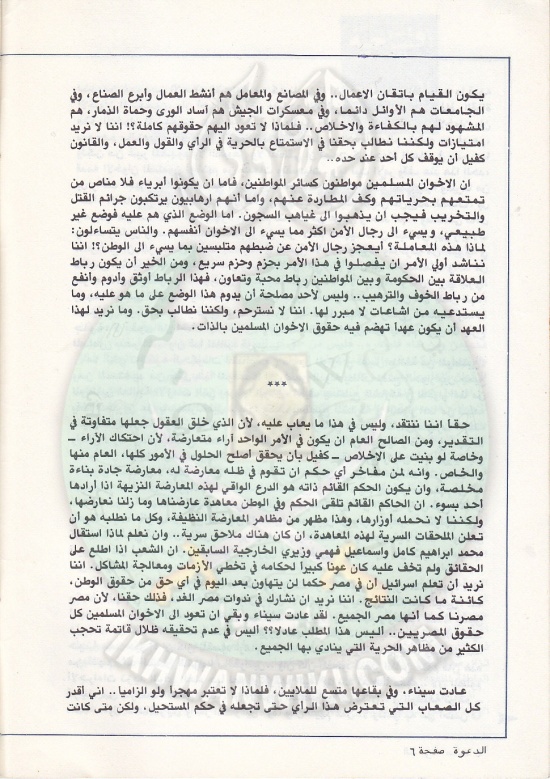 يكون القيام باتقان الاعمال.. وفي المصانع والمعامل هم أنشط العمال وأبرع الصناع، وفي
الجامعات هم الأوائل دائما، وفي معسكرات الجيش هم أساد الورى وحماة الذمار، هم
المشهود لهم بالكفاءة والاخلاص.. فلماذا لا تعود اليهم حقوقهم كاملة؟! اننا لا نريد
امتيازات ولكننا نطالب بحقنا في الاستمتاع بالحرية في الرأي والقول والعمل، والقانون
كفيل أن يوقف كل أحد عند حده..
ان الاخوان المسلمين مواطنون كسائر المواطنين، فاما ان يكونوا أبرياء فلا مناص من
تمتعهم بحرياتهم وكف المطاردة عنهم، واما أنهم ارهابيون يرتكبون جرائم القتل
والتخريب فيجب ان يذهبوا الى غياهب السجون. اما الوضع الذي هم عليه فوضع غير
طبيعي، ويسيء الى رجال الأمن اكثر مما يسيء الى الاخوان أنفسهم. والناس يتساءلون:
لماذا هذه المعاملة؟ أيعجز رجال الأمن عن ضبطهم متلبسين بما يسيء الى الوطن؟! اننا
نناشد أولي الأمر ان يفصلوا في هذا الأمر بحزم وحزم سريع، ومن الخير أن يكون رباط
العلاقة بين الحكومة وبين المواطنين رباط محبة وتعاون، فهذا الرباط أوثق وأدوم وأنفع
من رباط الخوف والترهيب.. وليس لأحد مصلحة أن يدوم هذا الوضع على ما هو عليه، وما
يستدعيه من اشاعات لا مبرر لها. اننا لا نسترحم، ولكننا نطالب بحق. وما نريد لهذا
العهد أن يكون عهداً تهضم فيه حقوق الاخوان المسلمين بالذات.
***
حقا اننا ننتقد، وليس في هذا ما يعاب عليه، لأن الذي خلق العقول جعلها متفاوتة في
التقدير، ومن الصالح العام ان يكون في الأمر الواحد أراء متعارضة، لأن احتكاك الأراء —
وخاصة لو بنيت على الاخلاص — كفيل بأن يحقق اصلح الحلول في الأمور كلها، العام منها
والخاص. وانه لمن مفاخر أي حكم ان تقوم في ظله معارضة له، معارضة جادة بناءة
مخلصة، وان يكون الحكم القائم ذاته هو الدرع الواقي لهذه المعارضة النزيهة اذا أرادها
أحد بسوء. ان الحاكم القائم تلقى الحكم وفي الوطن معاهدة عارضناها وما زلنا نعارضها،
ولكننا لا نحمله أوزارها، وهذا مظهر من مظاهر المعارضة النظيفة، وكل ما نطلبه هو أن
تعلن الملحقات السرية لهذه المعاهدة، ان كان هناك ملاحق سرية.. وان نعلم لماذا استقال
محمد ابراهيم كامل واسماعيل فهمي وزيري الخارجية السابقين. ان الشعب اذا اطلع على
الحقائق ولم تخف عليه كان عونا كبيرا لحكامه في تخطي الأزمات ومعالجة المشاكل. اننا
نريد أن تعلم اسرائيل أن في مصر حكما لن يتهاون بعد اليوم في أي حق من حقوق الوطن،
كائنة ما كانت النتائج. اننا نريد ان نشارك في ندوات مصر الغد، فذلك حقنا، لأن مصر
مصرنا كما أنها مصر الجميع. لقد عادت سيناء وبقي ان تعود الى الاخوان المسلمين كل
حقوق المصريين.. أليس هذا المطلب عادلا؟؟ أليس في عدم تحقيقه ظلال قاتمة تحجب
الكثير من مظاهر الحرية التي ينادي بها الجميع.
عادت سيناء، وفي بقاعها متسع للملايين، فلماذا لا تعتبر مهجراً ولو الزاميا.. اني أقدر
كل الصعاب التي تعترض هذا الرأي حتى تجعله في حكم المستحيل، ولكن متى كانت
الدعوة صفحة ٦
IKHWANWIKI.COM